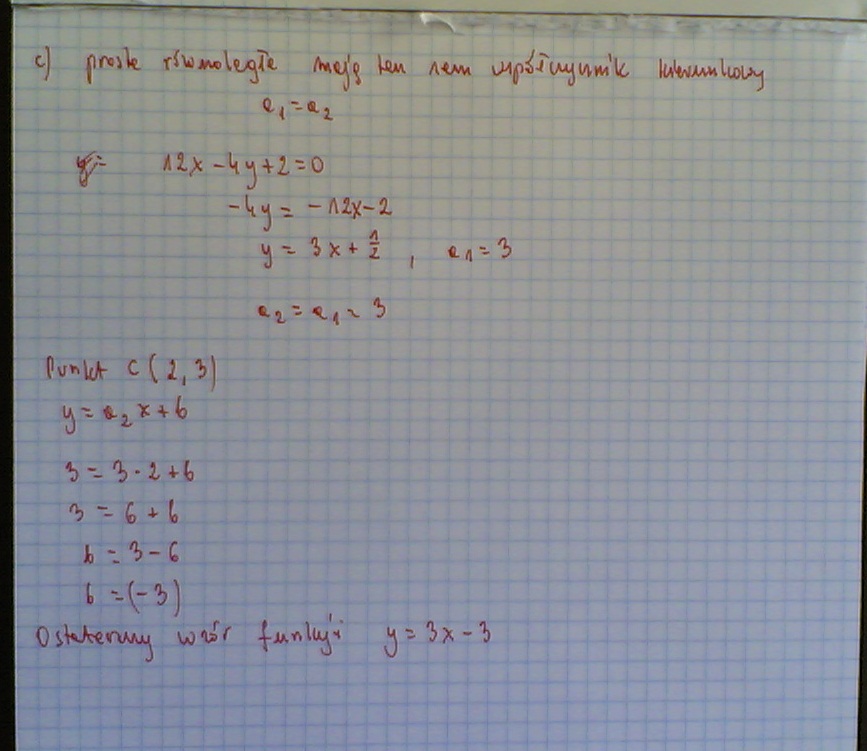 c) proste równoległe mają ten sam współczynnik kierunkowy
a₁ = a₂
y= 12x - 4y + 2 = 0
-4y = -12x - 2
y = 3x + 1/2 , a₁ = 3
a₂ = a₁ = 3
Punkt C (2, 3)
y = a₂x + b
3 = 3 · 2 + b
3 = 6 + b
b = 3 - 6
b = (-3)
Ostateczny wzór funkcji y = 3x - 3